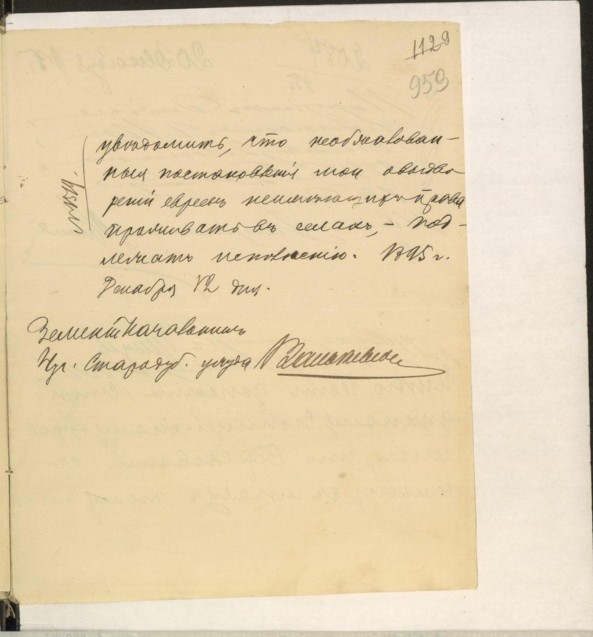 1128
959
уведомить, что необжалован-
ныя постановленія мои о выдво-
реніи евреевъ неимѣющихъ права
проживать въ селахъ, – под-
лежатъ исполненію. 1895 г.
Декабря 12 дня.
Земскій Начальникъ
Стародуб. уѣзда